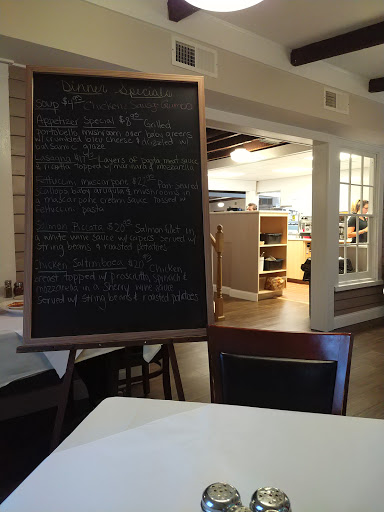 Dinner Specials
Soup $4.95 Chicken Sausage Gumbo
Appetizer Special $8.95 Grilled
portobello mushroom over baby greens
w/ crumbled bleu cheese & drizzled w/
balsamic glaze
Lasagna Layers of pasta meat sauce
& ricotta topped w/ marinara & mozzarella
Fettuccini mascarpone Pan seared
scallops baby arugula & mushrooms in
a mascarpone cream sauce tossed w/
fettuccini pasta
Salmon Piccata $20.95 Salmon filet in
a white wine sauce w/ capers served w/
string beans & roasted potatoes
Chicken Saltimbocca $20.95 Chicken
breast topped w/ prosciutto, spinach &
mozzarella in a sherry wine sauce
served w/ string beans & roasted potatoes